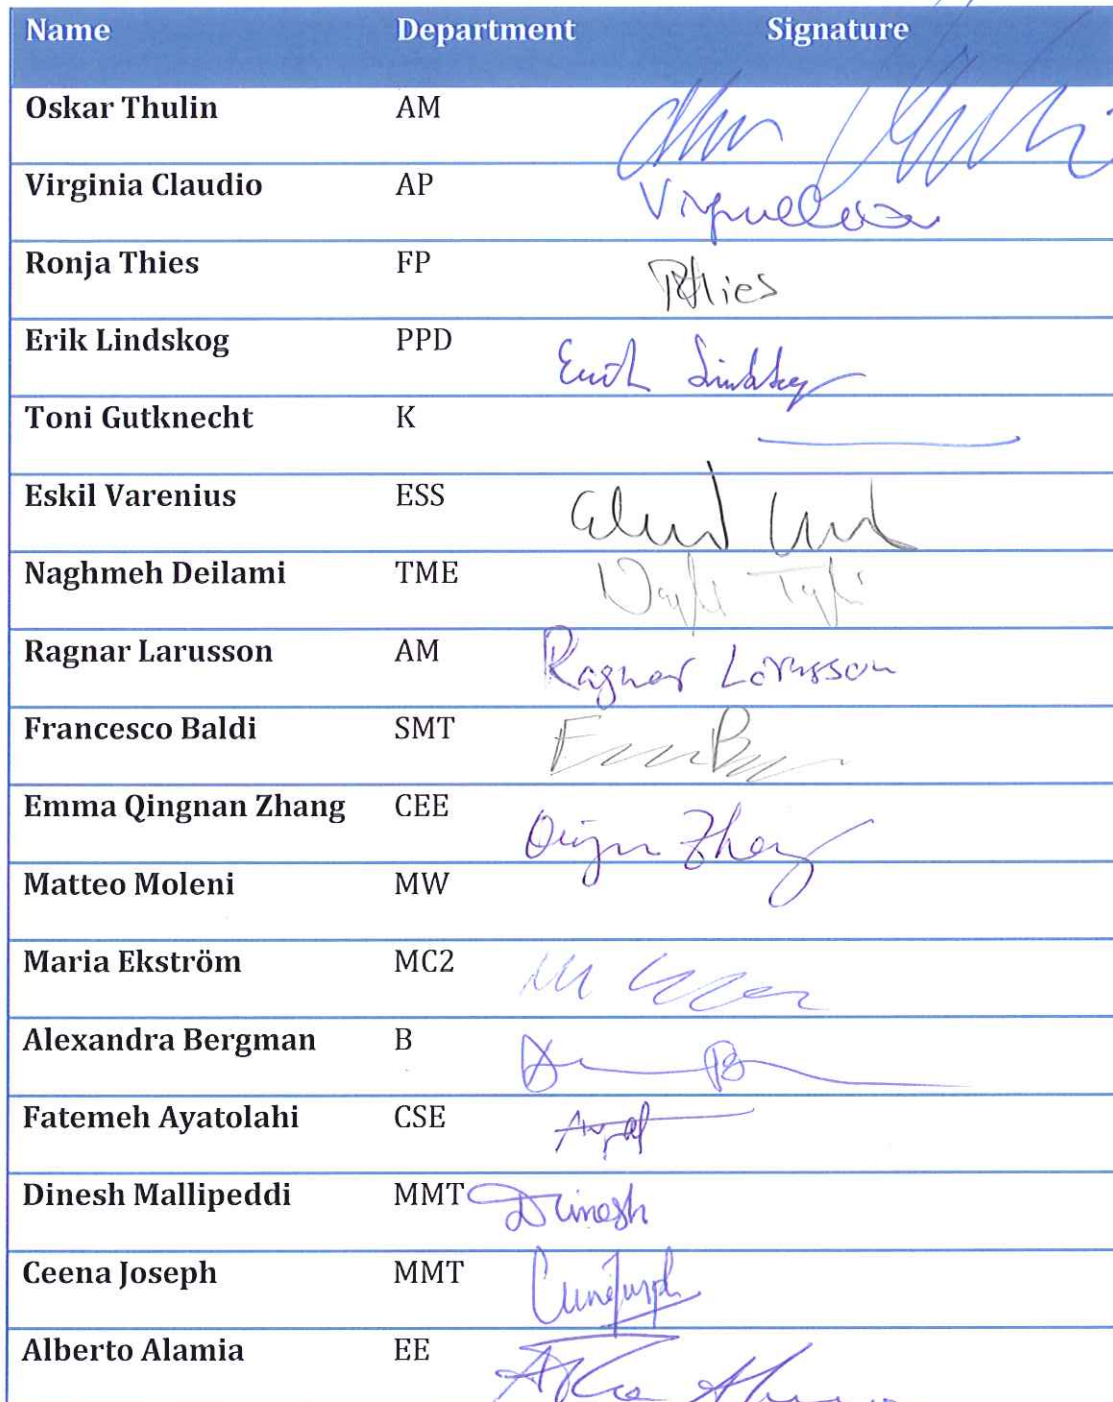 Name Department Signature
Oskar Thulin AM
Virginia Claudio AP
Ronja Thies FP RThies
Erik Lindskog PPD
Toni Gutknecht K
Eskil Varenius ESS
Naghmeh Deilami TME
Ragnar Larusson AM Ragnar Lárusson
Francesco Baldi SMT
Emma Qingnan Zhang CEE Zhang
Matteo Moleni MW
Maria Ekström MC2
Alexandra Bergman B
Fatemeh Ayatolahi CSE
Dinesh Mallipeddi MMT Dinesh
Ceena Joseph MMT
Alberto Alamia EE